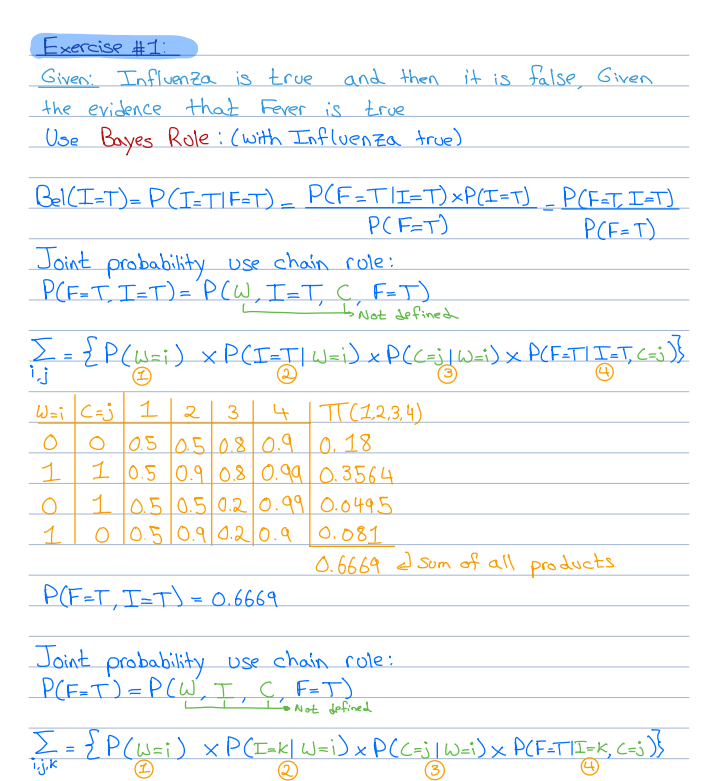 Exercise #1:
Given: Influenza is true and then it is false, Given
the evidence that Fever is true
Use Bayes Role: (with Influenza true)
Bel(I=T) = P(I=T|F=T) = P(F=T|I=T)×P(I=T) / P(F=T) = P(F=T, I=T) / P(F=T)
Joint probability use chain role:
P(F=T, I=T) = P(W, I=T, C, F=T)
Not defined
∑ i,j = {P(W=i) × P(I=T|W=i) × P(C=j|W=i) × P(F=T|I=T, C=j)}
① ② ③ ④
W=i C=j 1 2 3 4 π(1,2,3,4)
0 0 0.5 0.5 0.8 0.9 0.18
1 1 0.5 0.9 0.8 0.99 0.3564
0 1 0.5 0.5 0.2 0.99 0.0495
1 0 0.5 0.9 0.2 0.9 0.081
0.6669 sum of all products
P(F=T, I=T) = 0.6669
Joint probability use chain role:
P(F=T) = P(W, I, C, F=T)
Not defined
∑ i,j,k = {P(W=i) × P(I=k|W=i) × P(C=j|W=i) × P(F=T|I=k, C=j)}
① ② ③ ④